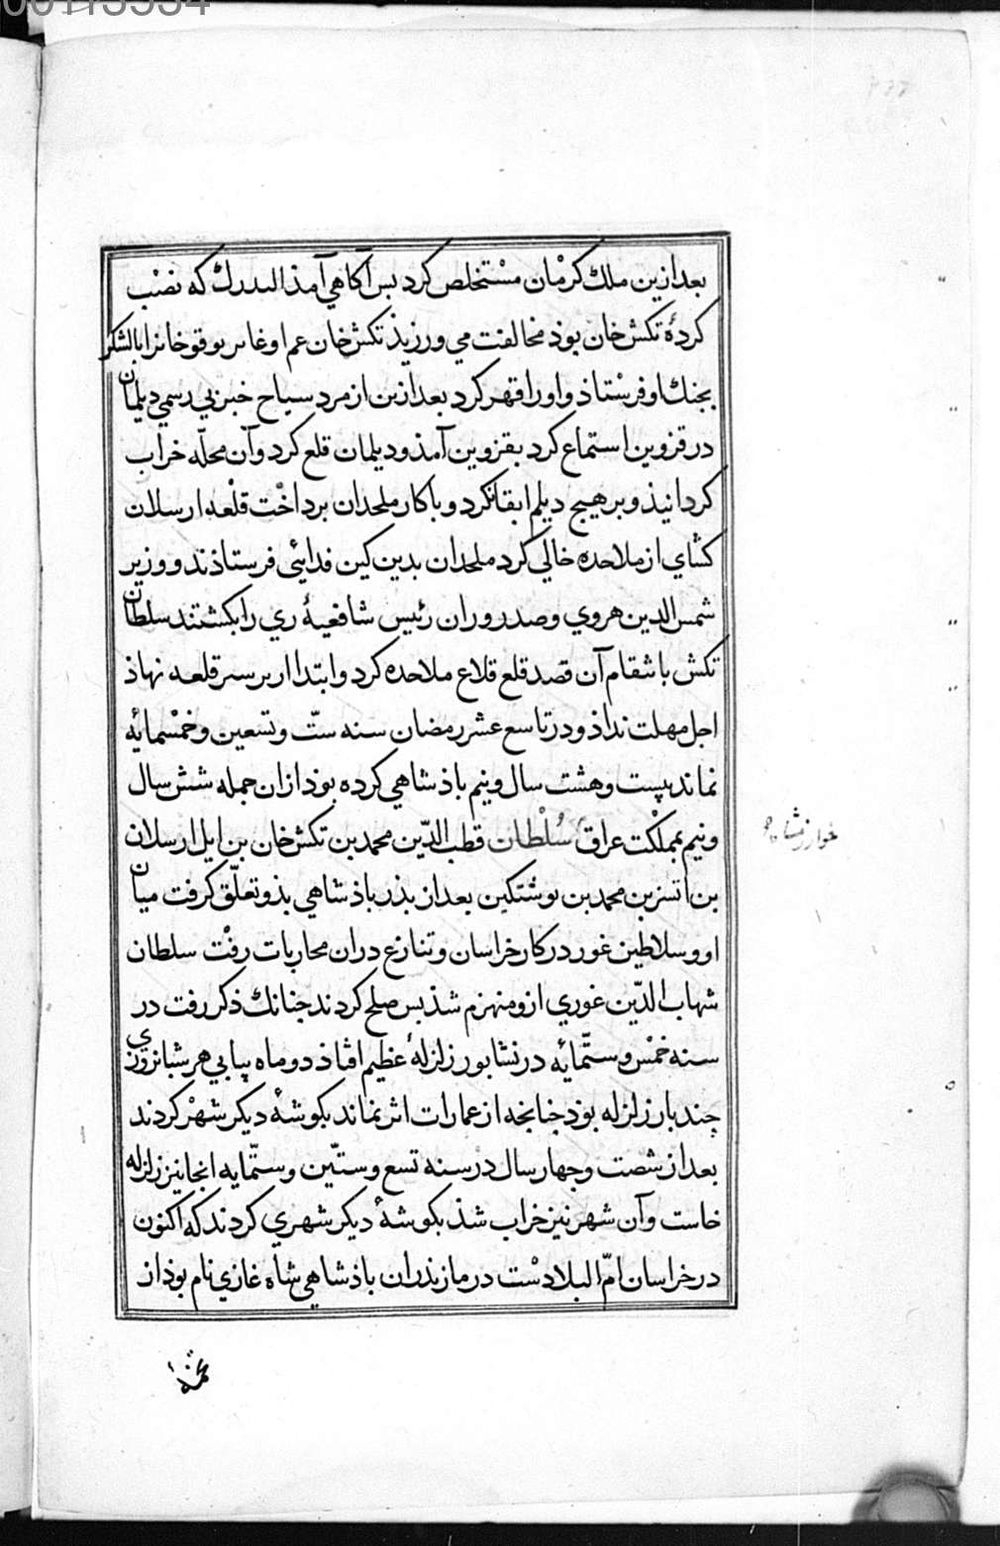 بعد ازین ملك كرمان مستخلص كرد بس آكاهي آمذ كه نصْب
كردۀ تكش خان بوذ مخالفت مي ورزیذ تكش خان عم او را بالشكر
بجنك او فرستاذ و او را قهر كرد بعد ازین از مرد سیاح خبر بي رسمي دیلمان
در قزوین استماع كرد بقزوین آمذ و دیلمان قلع كرد و آن محلّه خراب
كردانیذ و بر هیج دیلم ابقا نكرد و با كار ملحدان برداخْت قلْعه ارسلان
كشاي از ملاحده خالي كرد ملحدان بدین كین فدائي فرستاذند و وزیر
شمس الدین هروي و صدر وران رئیس شافعیۀ ري را بكشتند سلطان
تكش با شقام آن قصد قلع قلاع ملاحده كرد و ابتدا از بر سر قلعه نهاذ
اجل مهلت نداذ و در تاسع عشر رمضان سنه ستّ و تسعین و خمْسمایٔه
نماند بیست و هشت سال و نیم باذشاهي كرده بوذ ازان جمله شش سال
و نیم بمملْكت عراق سُلْطان قطب الدّین محمد بن تكش خان بن ایل ارسلان
بن اتسز بن محمد بن نوشتكین بعد از بذر باذشاهي بذو تعلّق كرفت میان
او و سلاطین غور در كار خراسان و تنازع دران محاربات رفْت سلطان
شهاب الدّین غوري ازو منهزم شذ بس صلح كردند جنانك ذكر رفت در
سنه خمْس و ستّمائه در نشابور زلزلۀ عظیم افتاذ دو ماه بیابي هر شبانروزي
چند بار زلزله بوذ جنانجه از عمارات اثر نماند بكوشۀ دیكر شهْر كردند
بعد از شصت و جهار سال در سنه تسع و ستّین و ستّمایه انجا نیز زلزله
خاست و آن شهر نیز خراب شذ بكوشۀ دیكر شهري كردند كه اكنون
در خراسان امّ البلادسْت در مازندران باذشاهي شاه غازي نام بوذ از
خوارزمشاه
تخمهٔ